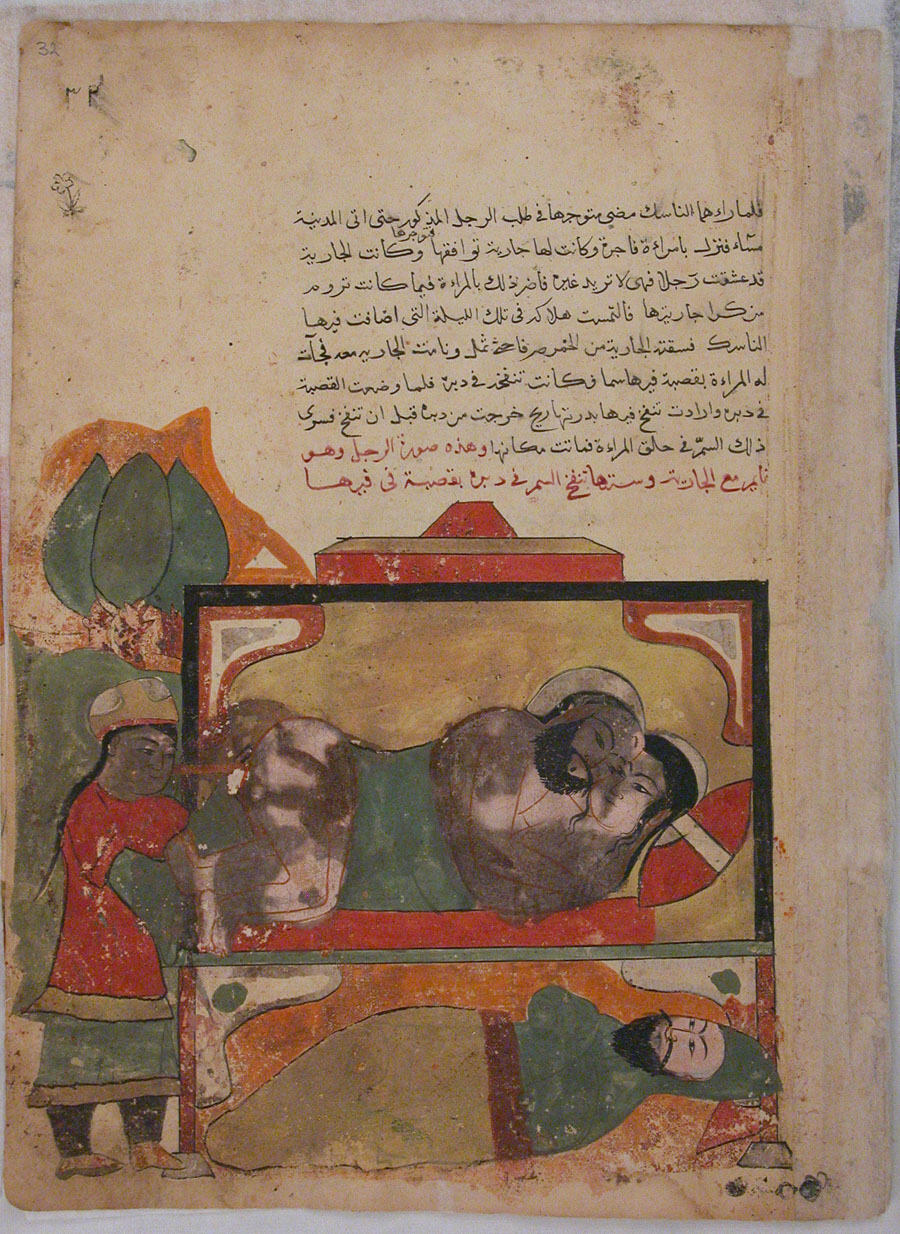 32
٣٢
فلما راءهما الناسك مضى متوجها في طلب الرجل المذكور حتى اتى المدينة
مساء فنزل بامراءة فاجرة وكانت لها جارية توافقها وكانت الجارية
قد عشقت رجلا فهى لا تريد غيره فأضر ذلك بالمراءة فيما كانت تروم
من كرا جاريتها فالتمست هلاكه في تلك الليلة التى اضافت فيها
الناسك فسقته الجارية من الخمر صرفا حتى ثمل ونامت الجارية معه فجآت
له المراءة بقصبة فيها سما فكانت تنفخه في دبره فلما وضعت القصبة
في دبره وارادت تنفخ فيها بدرتها ريح خرجت من دبره قبل ان تنفخ فسرى
ذلك السم في حلق المراءة فماتت مكانها وهذه صورة الرجل وهو
نايم مع الجارية وستها تنفخ السم في دبره بقصبة في فيها